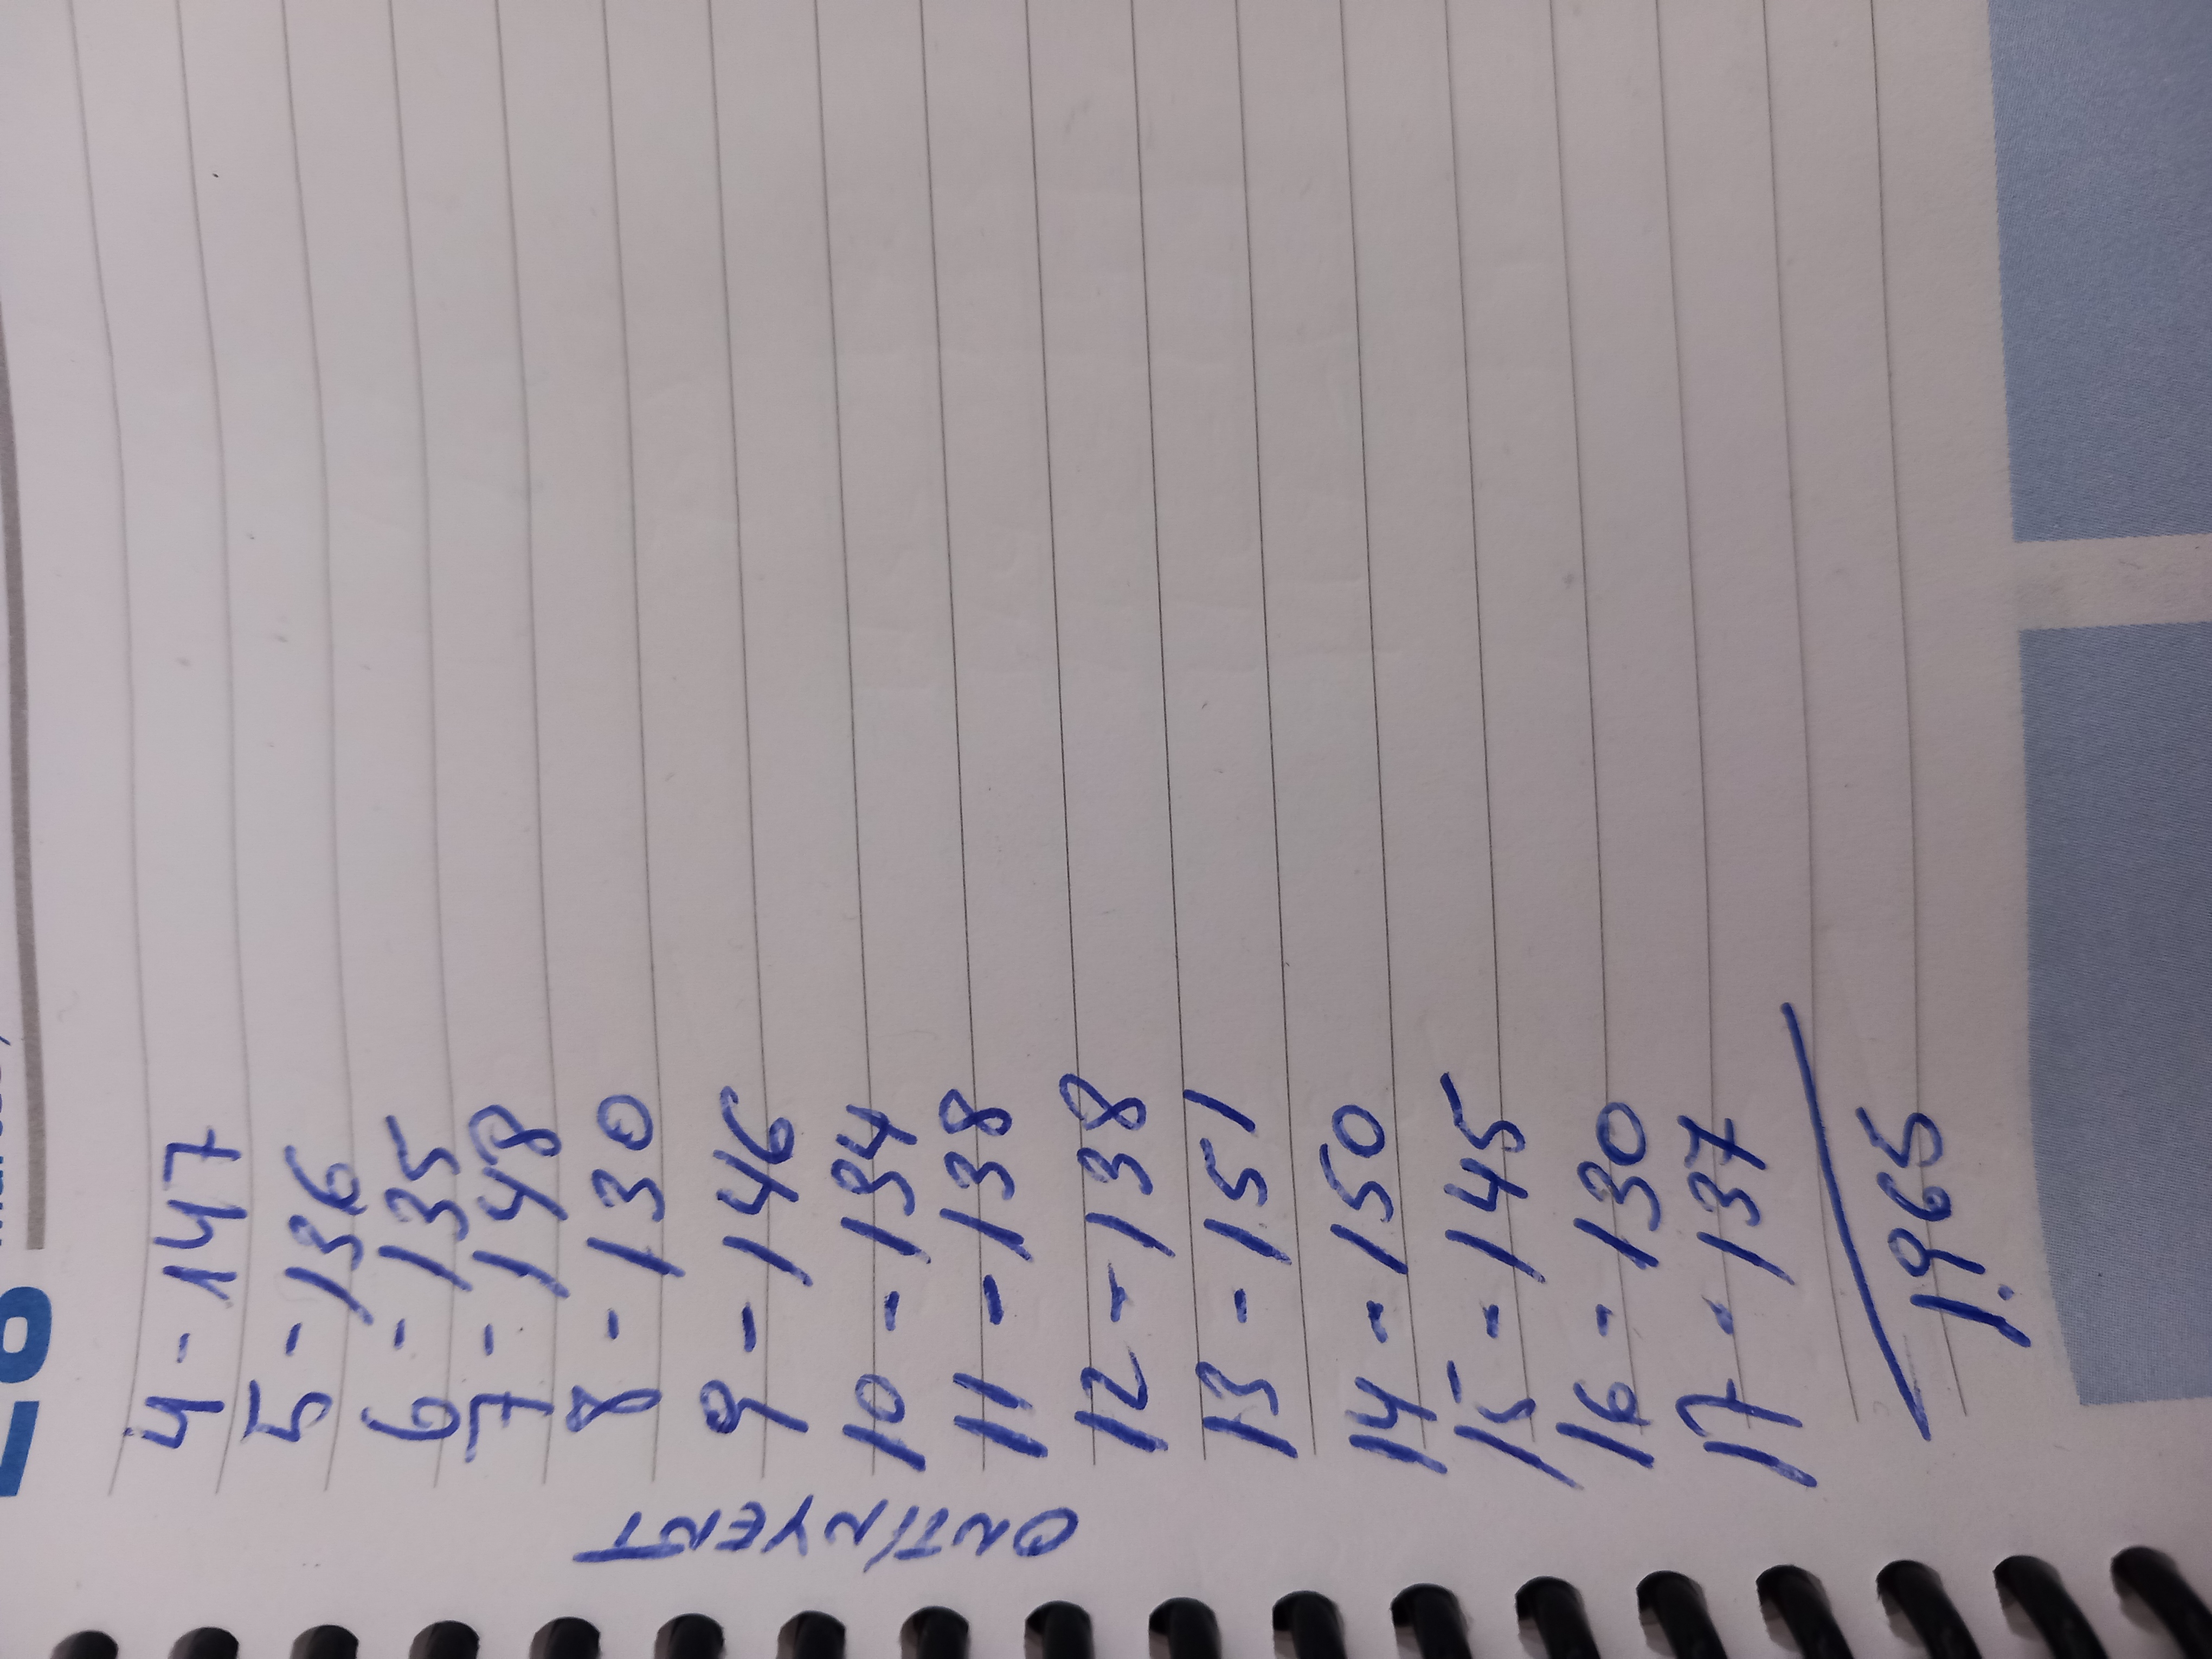 4 - 147
5 - 136
6 - 135
7 - 148
8 - 130
9 - 146
10 - 134
11 - 138
12 - 138
13 - 151
14 - 150
15 - 145
16 - 130
17 - 137
1.965
ONTINYENT